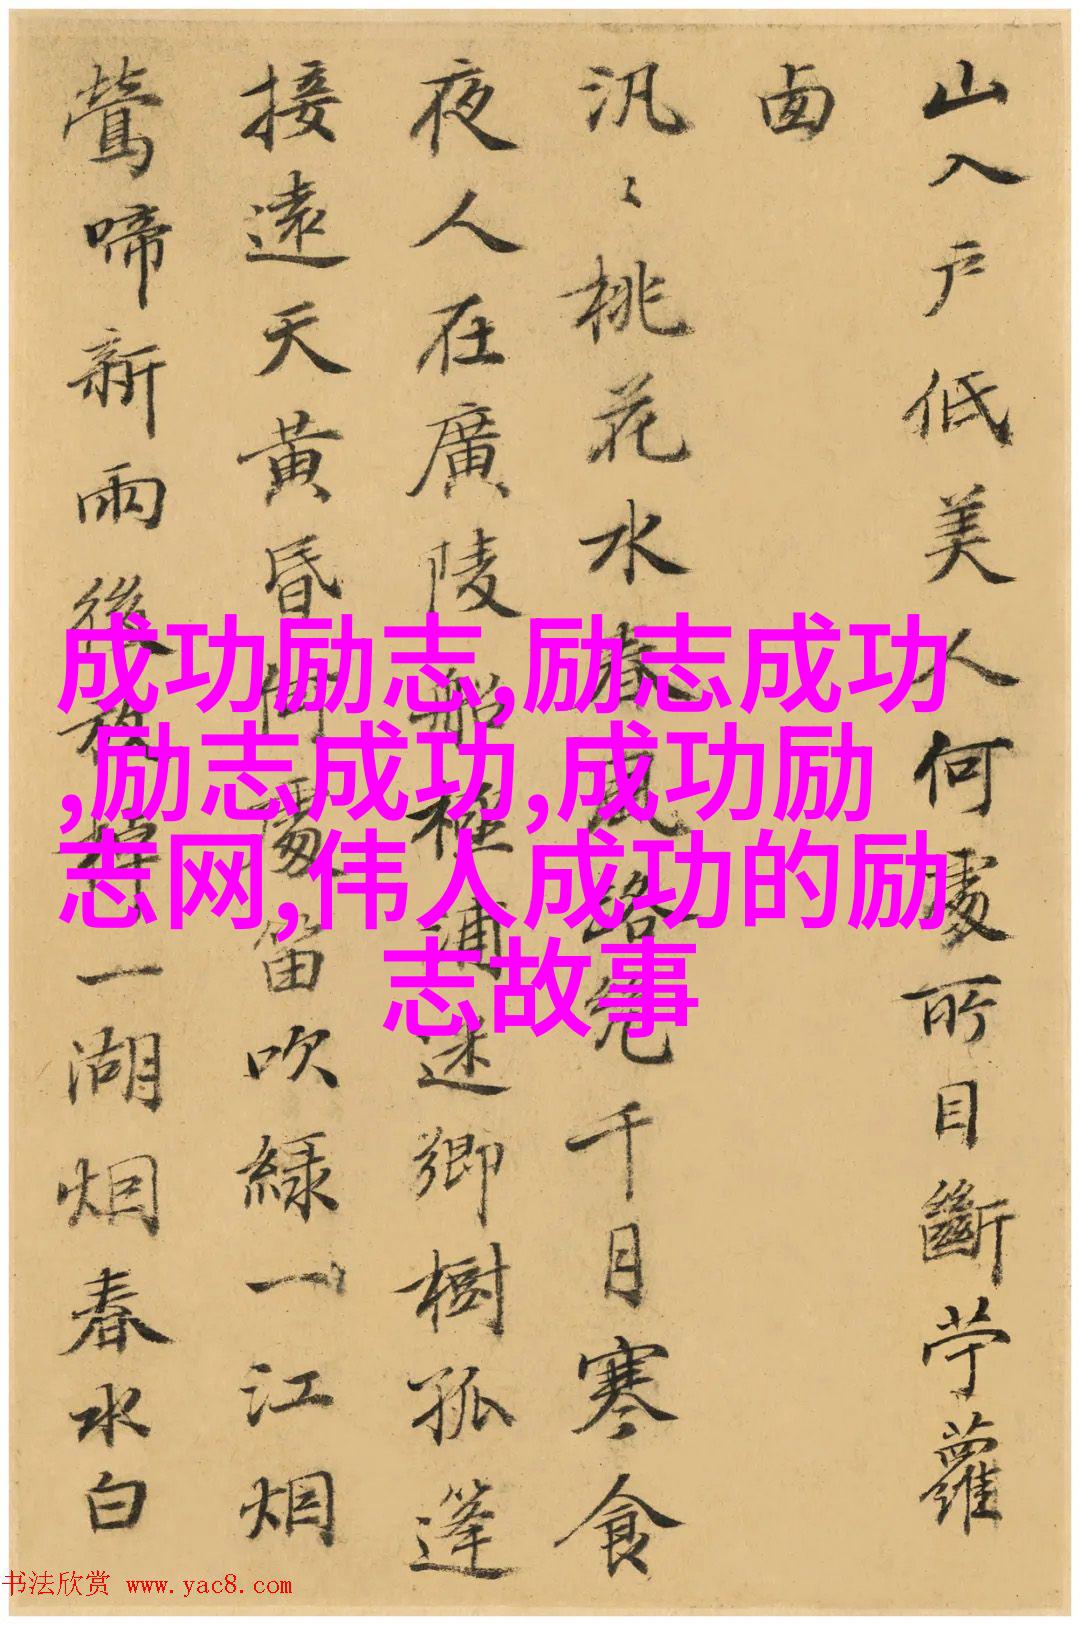 山入戶低美人何處所目斷苧蘿
汎〻桃花水春風路千月寒食
夜人在廣陵船極浦迷鄉樹孤篷
接遠天黃昏笛吹綠一江烟
鶯啼新雨後一湖烟春水白
成功励志,励志成功
,励志成功,成功励
志网,伟人成功的励
志故事
书法欣赏 www.yac8.com